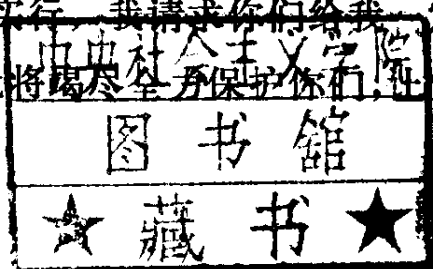 实行，我请求你们给我
中央社会主义学院
将竭尽全力保护你们，让
图书馆
★藏书★